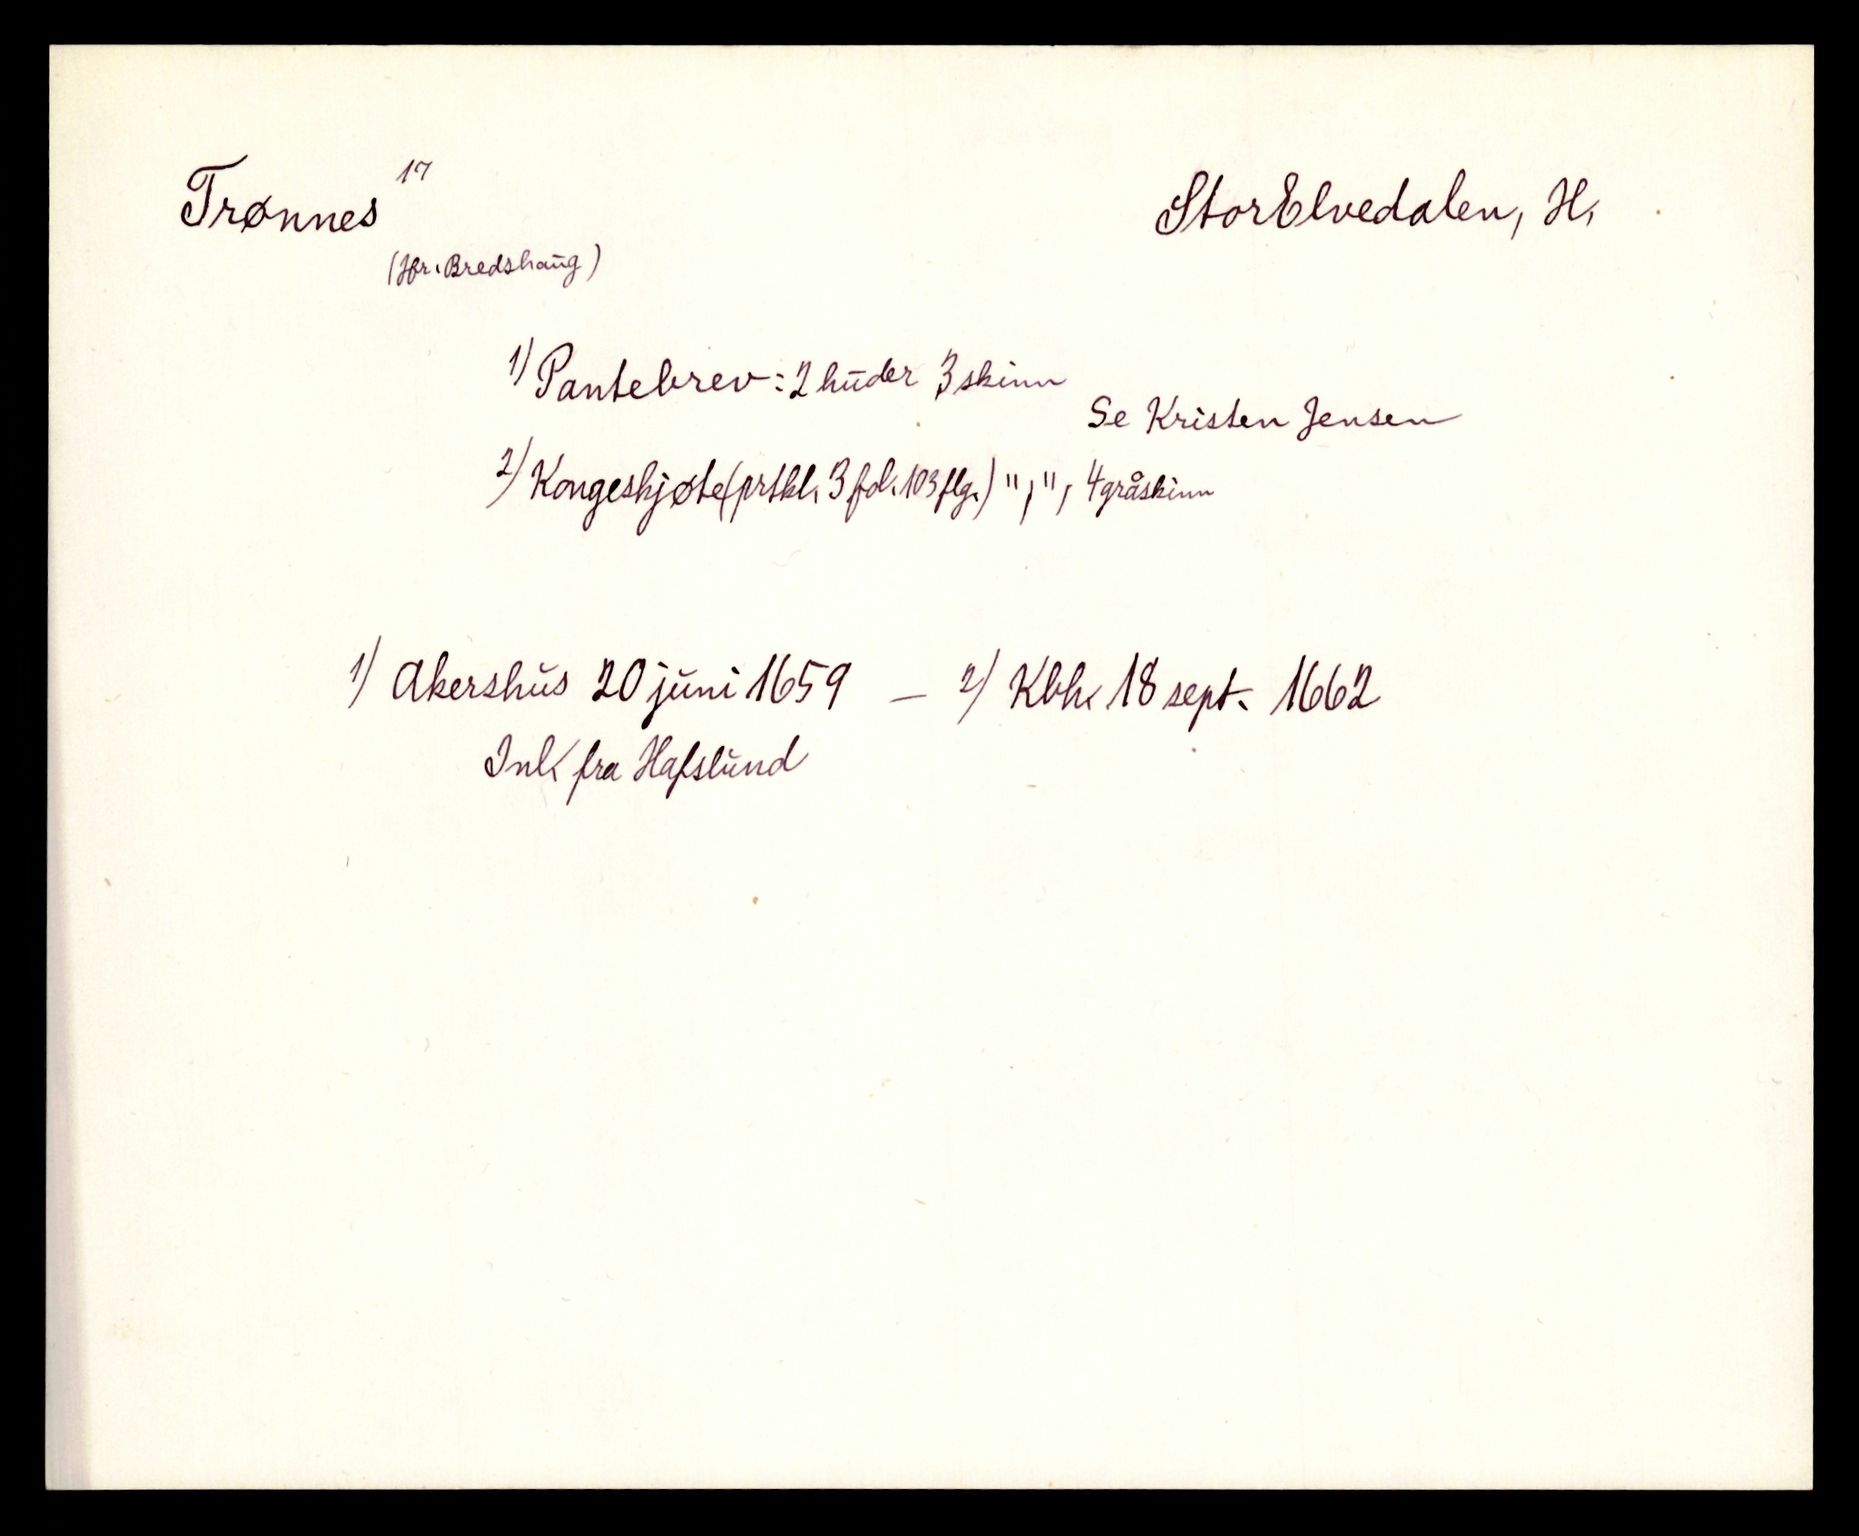 Trønnes 17
StorElvedalen, H.
(Jfr. Bredshaug)
1) Pantebrev: 2 huder 3 skinn
Se Kristen Jensen
2) Kongeskjøte (prtkl. 3 fol. 103 flg.) ", ", 4 gråskinn
1) Akershus 20 juni 1659 — 2) Kbh. 18 sept. 1662
Ink. fra Hafslund